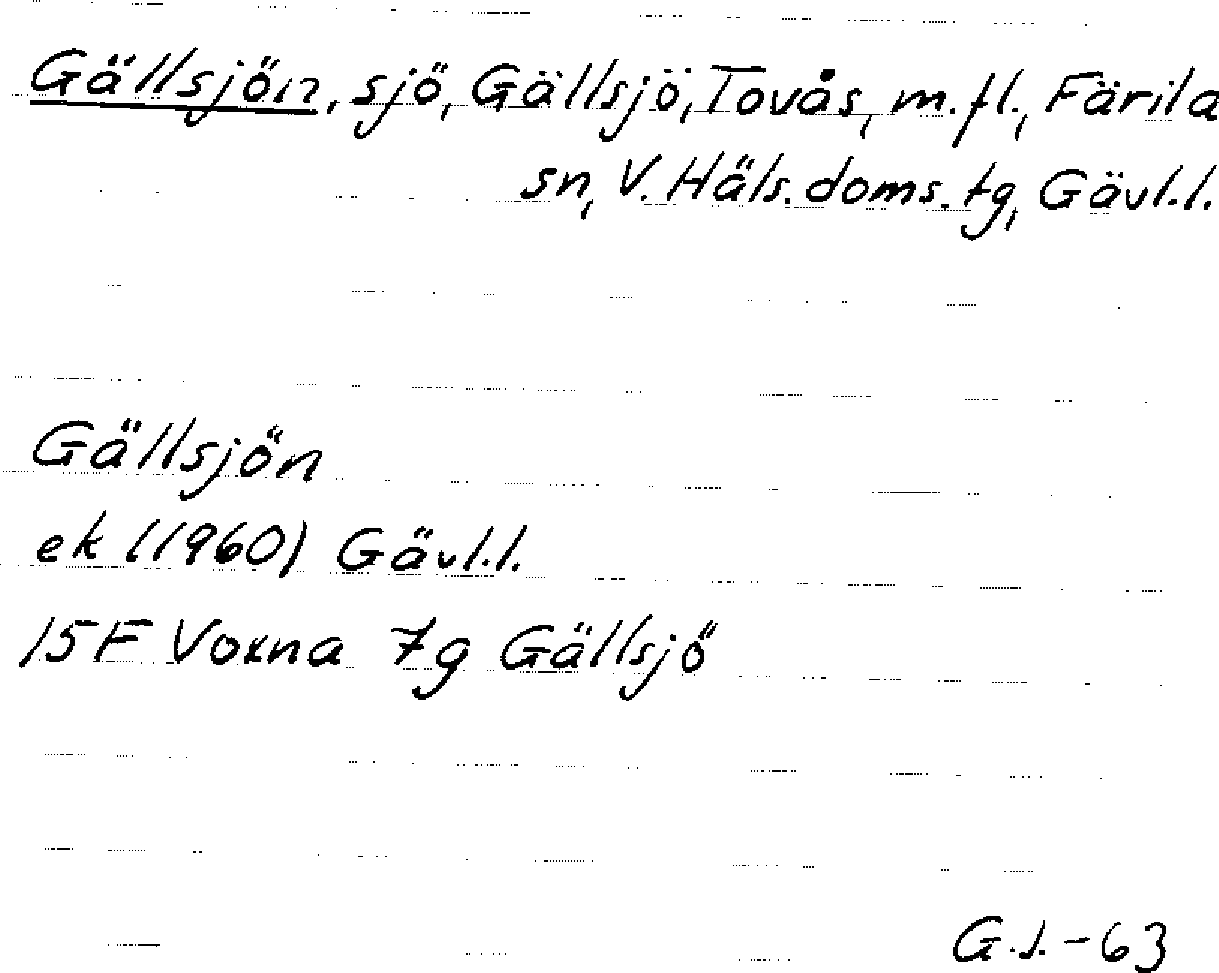 Gällsjön, sjö, Gällsjö, Tovås, m.fl., Färila
sn, V. Häls. doms. tg, Gävl.l.
Gällsjön
ek (1960) Gävl.l.
15F Voxna 7g Gällsjö
G.J.-63